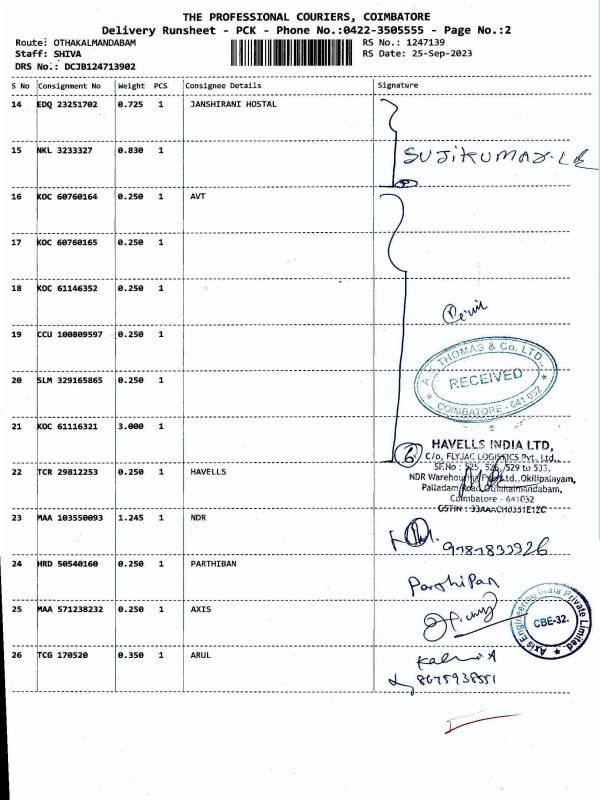 THE PROFESSIONAL COURIERS, COIMBATORE
Delivery Runsheet - PCK - Phone No.:0422-3505555 - Page No.:2
Route: OTHAKALMANDABAM
RS No.: 1247139
Staff: SHIVA
RS Date: 25-Sep-2023
DRS No.: DCJB124713902
S No Consignment No Weight PCS Consignee Details Signature
14 EDQ 23251702 0.725 1 JANSHIRANI HOSTAL
15 NKL 3233327 0.830 1
SUJIKUMAR
16 KOC 60760164 0.250 1 AVT
17 KOC 60760165 0.250 1
18 KOC 61146352 0.250 1
19 CCU 100809597 0.250 1
20 SLM 329165865 0.250 1
A.V. THOMAS & Co. LTD.,
RECEIVED
COIMBATORE - 641 032
21 KOC 61116321 3.000 1
6
HAVELLS INDIA LTD,
C/o, FLYJAC LOGISTICS Pvt. Ltd.,
SF.No : 525, 526, 529 to 533,
NDR Warehousing Pvt. Ltd., Okilipalayam,
Palladam Road, Othakalmandabam,
Coimbatore - 641032
22 TCR 29812253 0.250 1 HAVELLS
23 MAA 103550093 1.245 1 NDR
9787833926
24 HRD 50540160 0.250 1 PARTHIBAN
Parthipan
25 MAA 571238232 0.250 1 AXIS
Axis Engineering India Private Limited
CBE-32.
26 TCG 170520 0.350 1 ARUL
8675938551